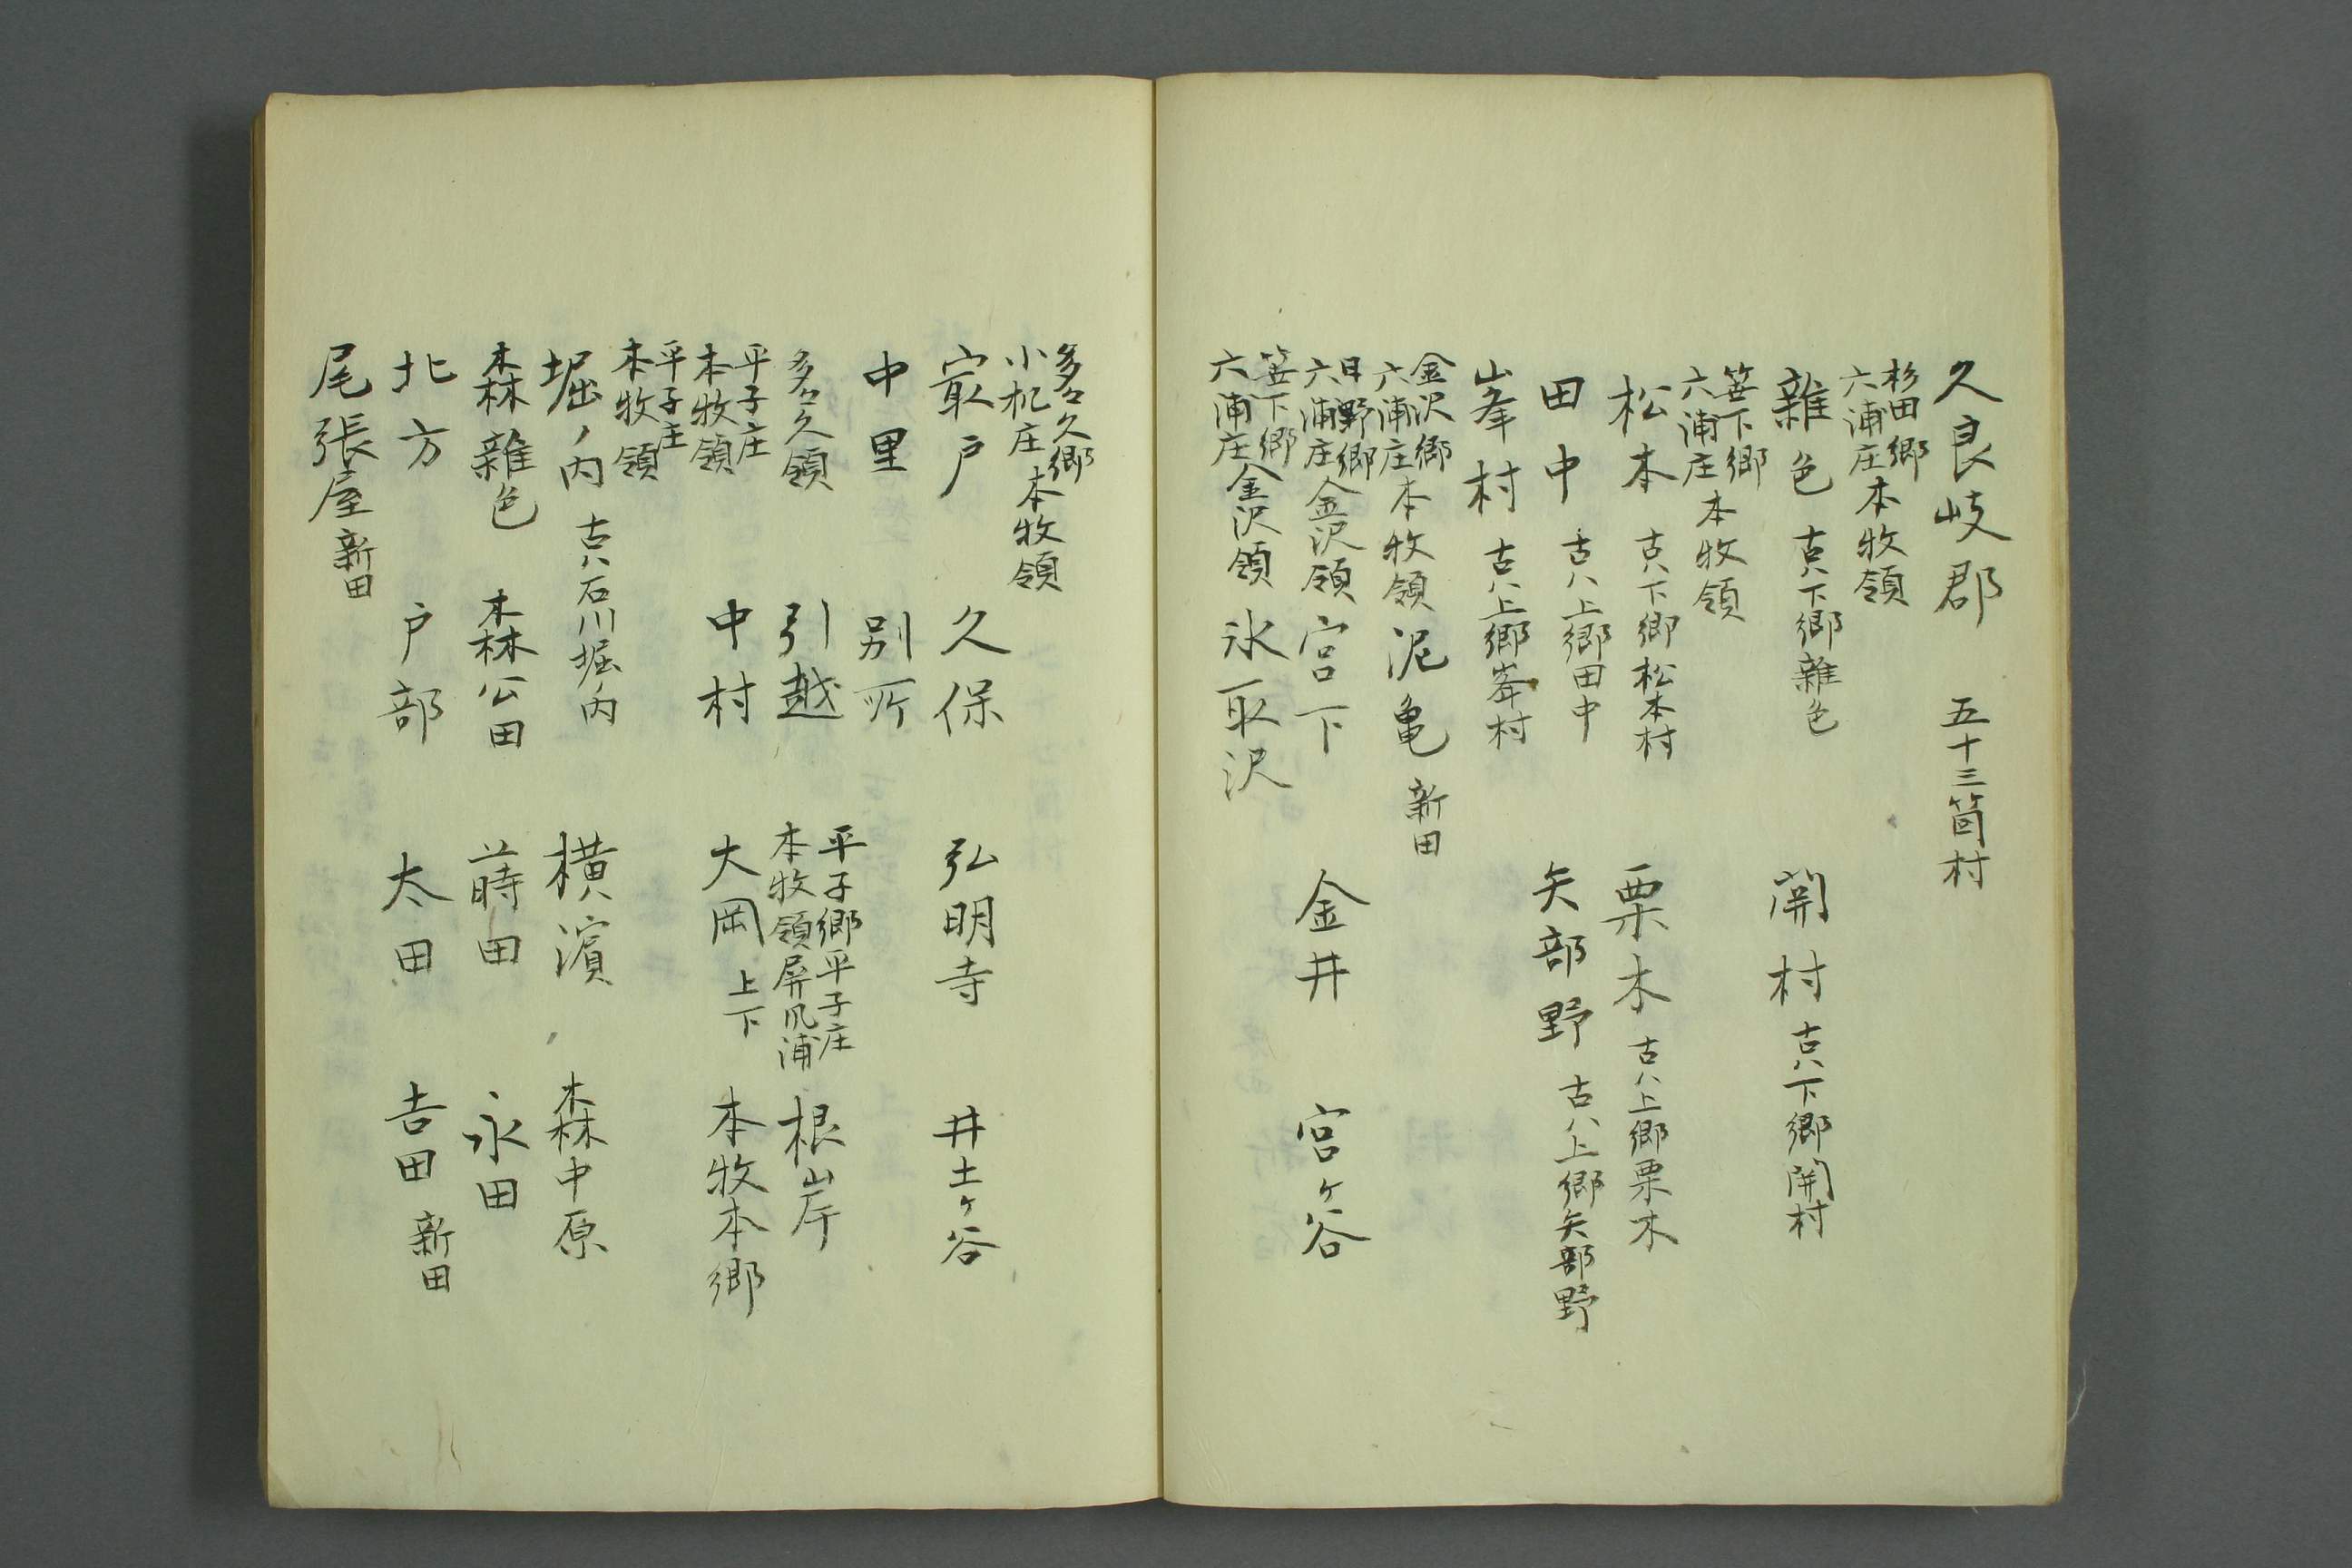 久良岐郡　五十三箇村
杉田郷
六浦庄本牧領
雜色　古ハ下郷雜色　開村　古ハ下郷開村
笹下郷
六浦庄本牧領
松本　古ハ下郷松本村　栗木　古ハ上郷栗木
田中　古ハ上郷田中　矢部野　古ハ上郷矢部野
峯村　古ハ上郷峯村
金沢郷
六浦庄本牧領　泥亀　新田
日野郷
六浦庄金沢領　宮下　金井　宮ケ谷
笹下郷
六浦庄金沢領　氷取沢
多々久郷
小机庄本牧領
最戸　久保　弘明寺　井土ケ谷
中里　別所
多々久領　引越
平子郷平子庄
本牧領屏風浦　根岸
平子庄
本牧領　中村　大岡　上下　本牧本郷
平子庄
本牧領
堀ノ内　古ハ石川堀ノ内　横濵　森中原
森雜色　森公田　蒔田　永田
北方　戸部　太田　吉田　新田
尾張屋　新田